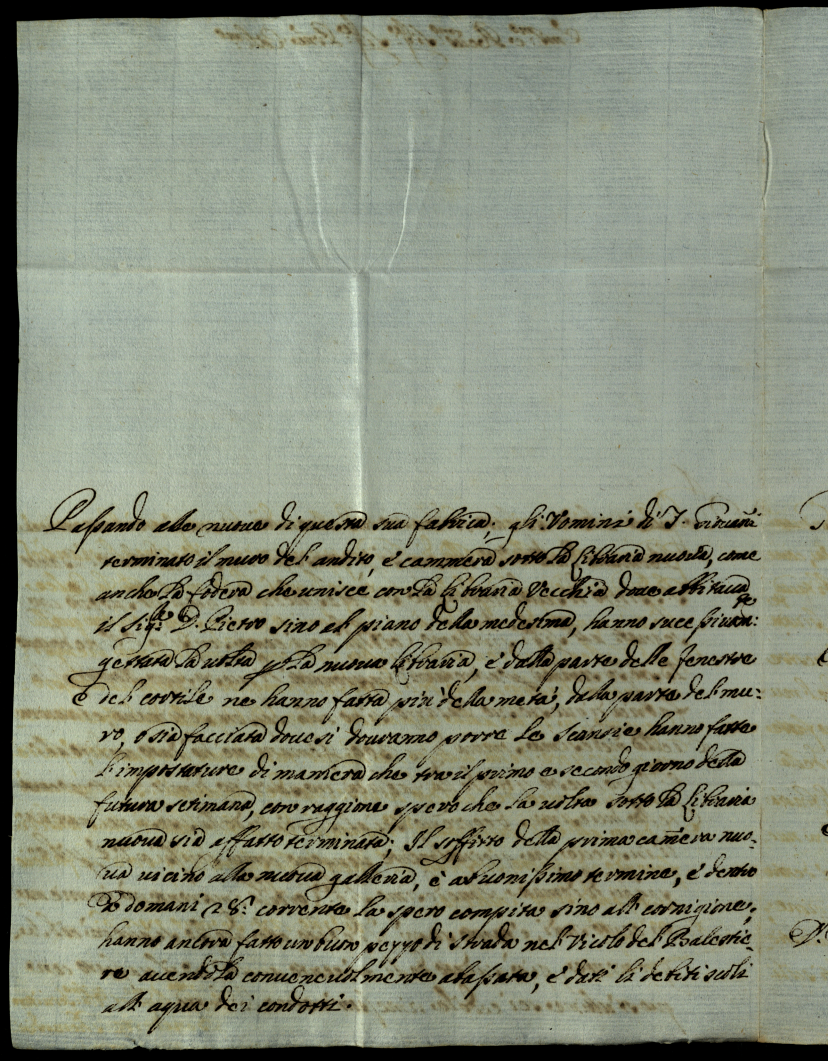 Passando alle nuove di questa sua fabrica; gli Vomini di
terminato il muro del andito, e cammera sotto la Libraria nuova, come
anche la fodera che unisce con la Libraria Vecchia doue abbitaua
il Sig.r D. Pietro sino al piano della medesima, hanno sucessiuam:te
gettata la uolta p la nuova Libraria, e dalla parte delle fenestre
e del cortile ne hanno fatta piu della metà, dala parte del mu:
ro, o sia facciata doue si douranno porre le Scansie hanno fatte
l'impostature di maniera che tra il primo e secondo giorno della
futura setimana, con raggione spero che la uolta sotto la Libraria
nuoua sia affatto terminata; Il soffitto della prima camera nuo:
ua uicino alla nuoua galleria, è a buonissimo termine, e dentro
domani 28: corrente la spero compita sino all cornigione;
hanno ancora fatto un buon pezzo di strada nel Vicolo del Balestie:
re auendola conueneuolmente abassata, e dati li debiti scoli
all aqua dei condotti.